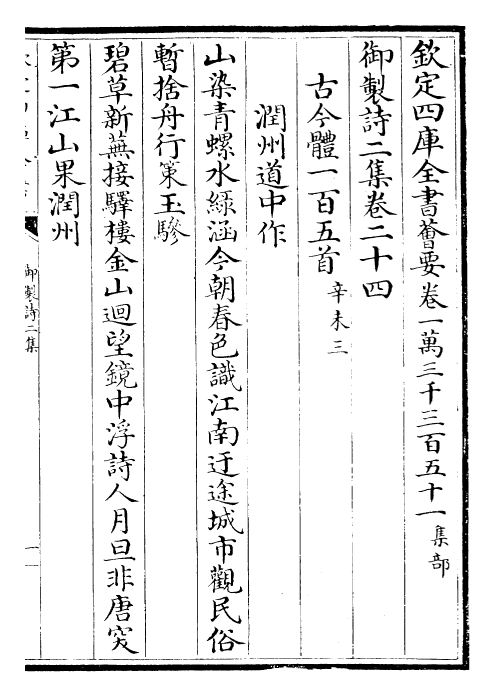 欽定四庫全書薈要卷一萬三千三百五十一集部
御製詩二集卷二十四
古今體一百五首辛未三
潤州道中作
山染青螺水綠涵今朝春色識江南迂途城市觀民俗
暫捨舟行策玉驂
碧草新蕪接驛樓金山迴望鏡中浮詩人月旦非唐突
第一江山果潤州
御製詩二集
一